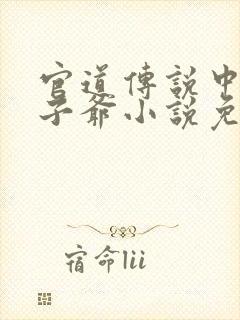 官道傳說中
子爺小說免
宿命lii